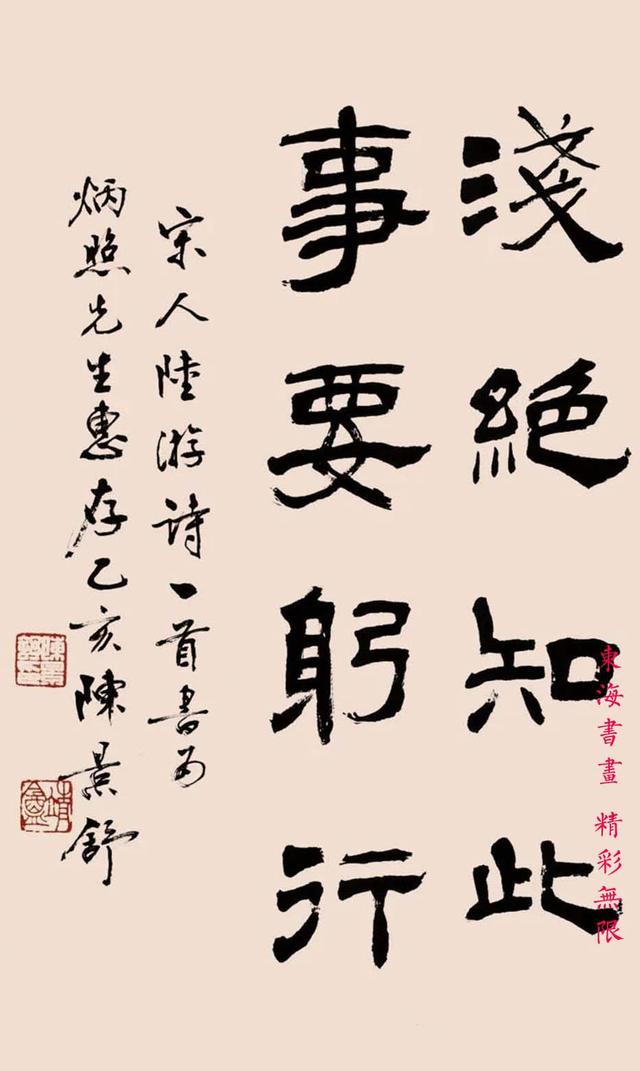 淺絕知此
事要躬行
宋人陸游詩一首書為
炳照先生惠存乙亥陳景舒
東海書畫 精彩無限